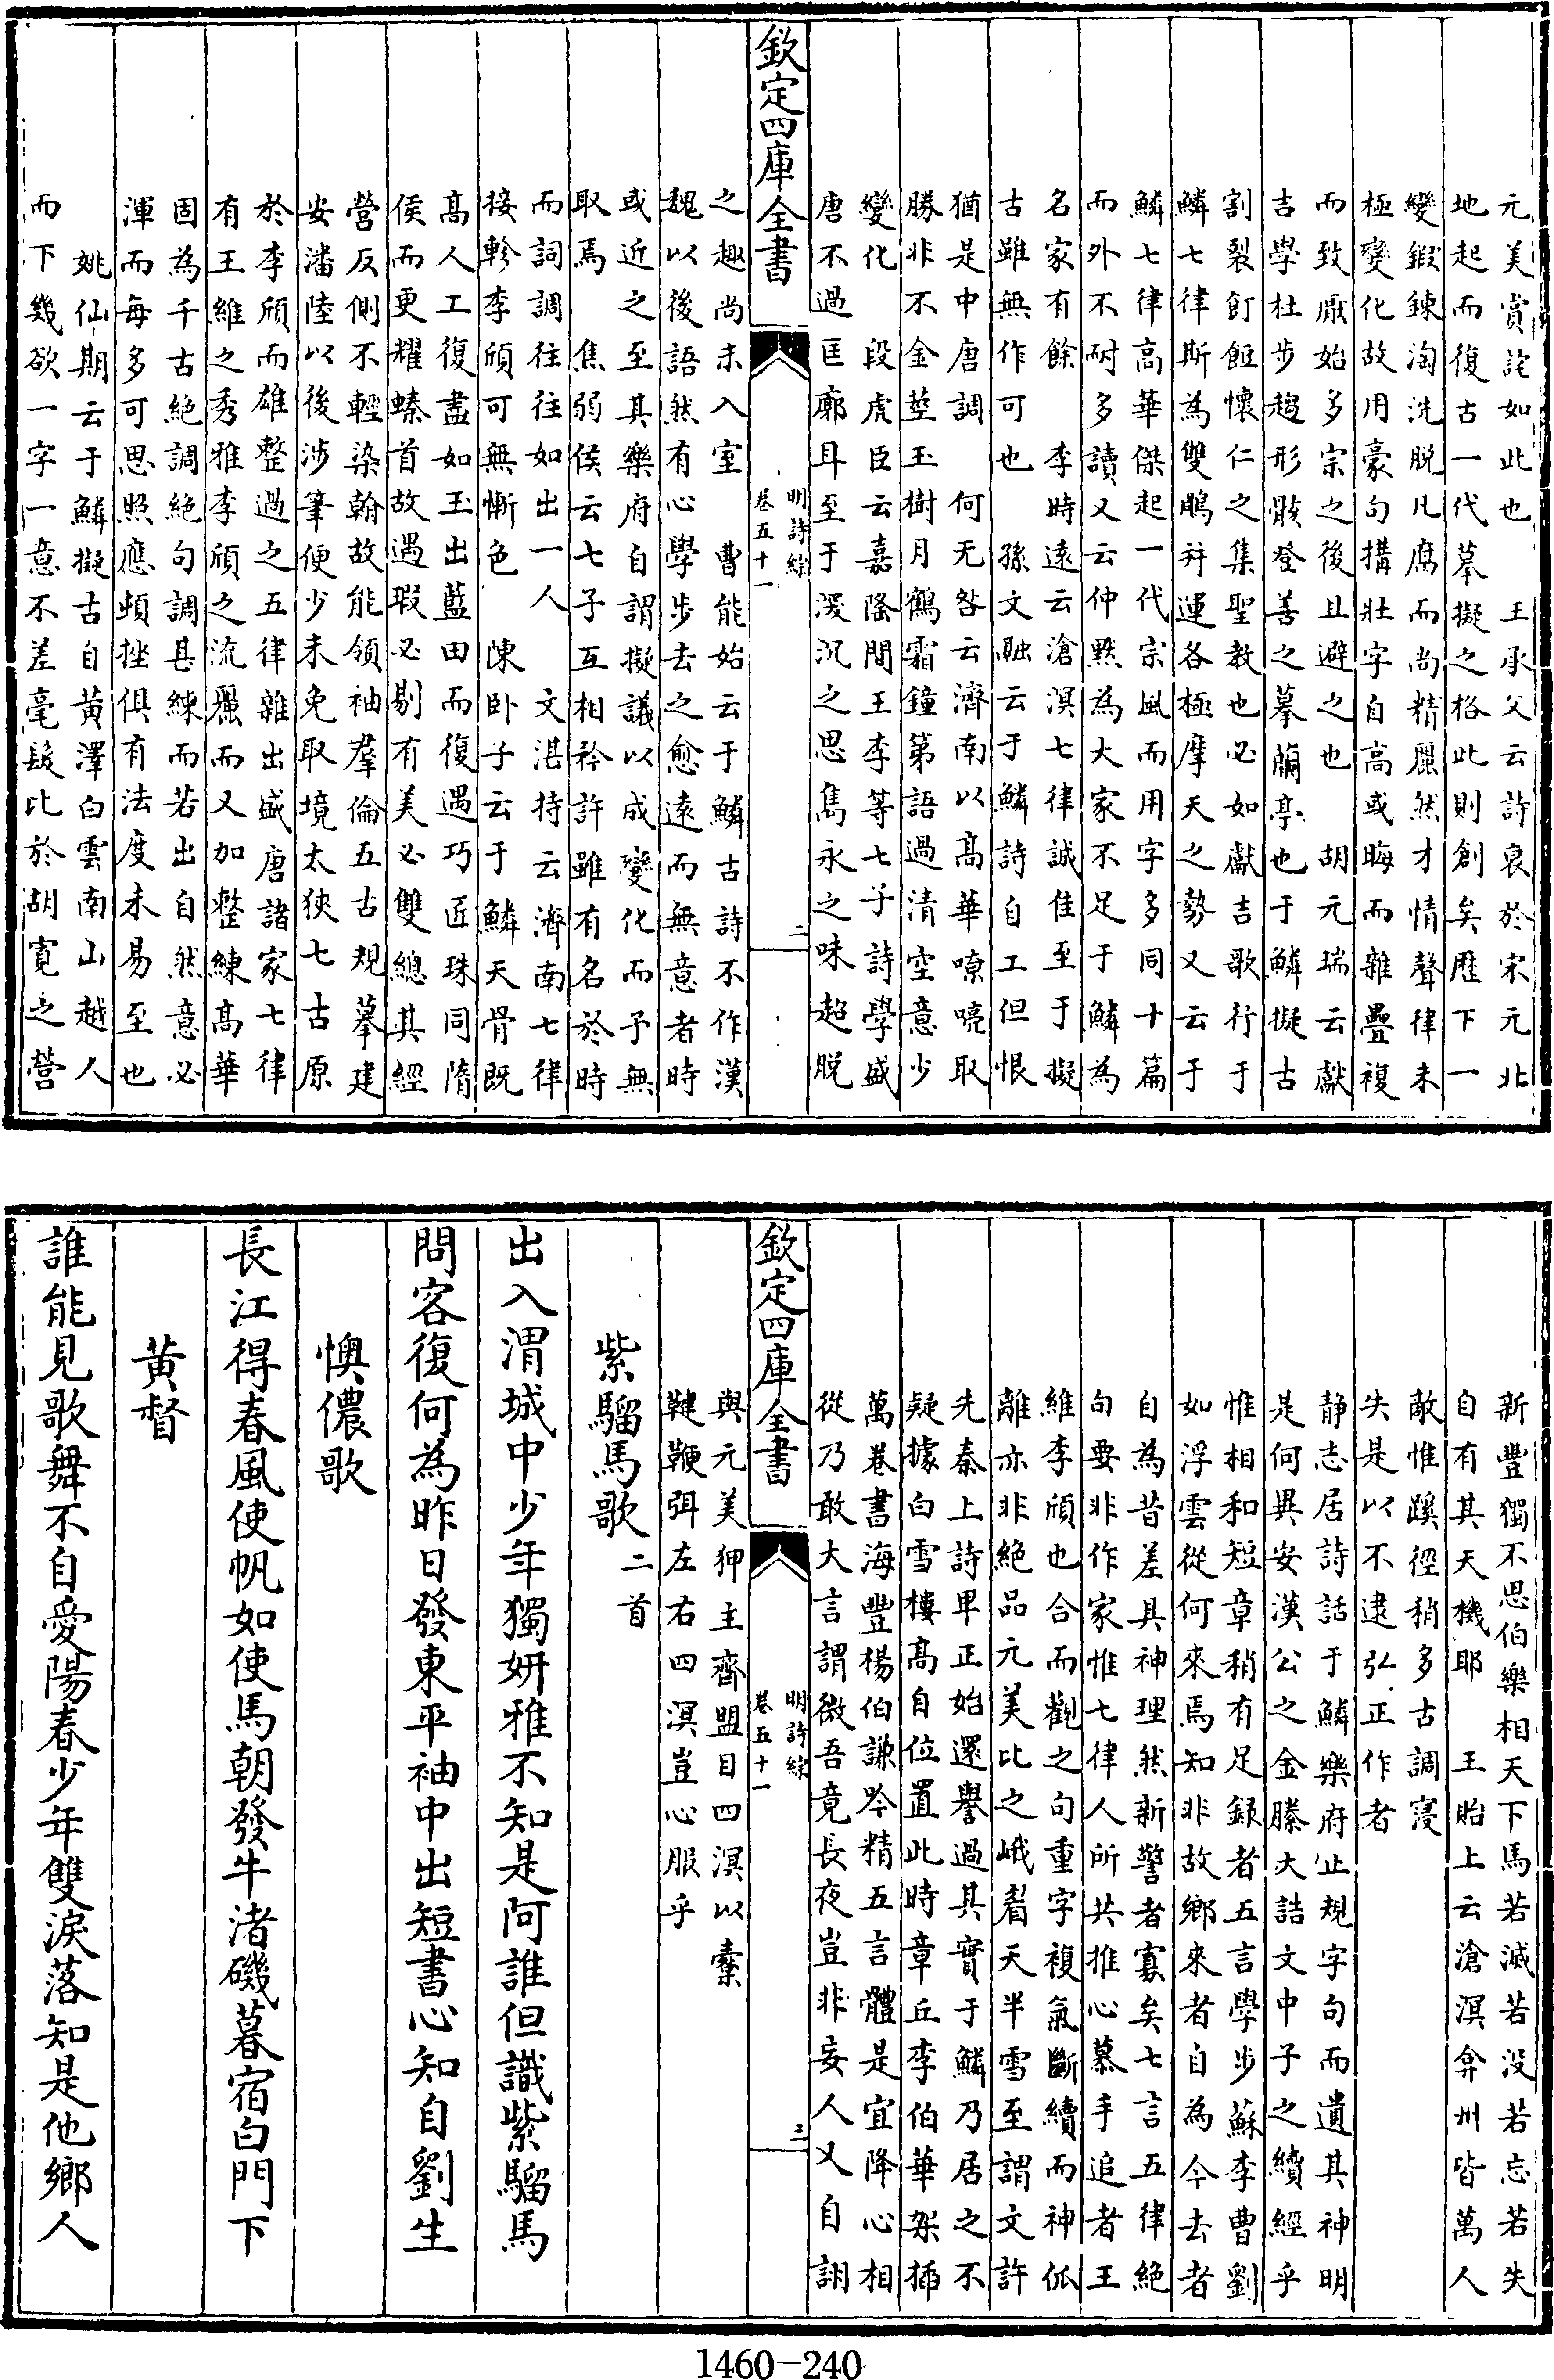 元美賞詫如此也　王承父云詩衰於宋元北
地起而復古一代摹擬之格此則創矣歷下一
變鍛鍊淘洗脫凡腐而尚精麗然才情聲律未
極變化故用豪句搆壯字自高或晦而雜疊複
而致厭始多宗之後且避之也　胡元瑞云獻
吉學杜步趨形骸登善之摹蘭亭也于鱗擬古
割裂飣餖懷仁之集聖教也必如獻吉歌行于
鱗七律斯為雙鵰并運各極摩天之勢又云于
鱗七律高華傑起一代宗風而用字多同十篇
而外不耐多讀又云仲黙為大家不足于鱗為
名家有餘　李時遠云滄溟七律誠佳至于擬
古雖無作可也　孫文融云于鱗詩自工但恨
猶是中唐調　何无咎云濟南以髙華嘹喨取
勝非不金莖玉樹月鶴霜鐘第語過清空意少
變化　段虎臣云嘉隆間王李等七子詩學盛
唐不過匡廓耳至于深沉之思雋永之味超脫
欽定四庫全書
明詩綜
卷五十一
二
之趣尚未入室　曹能始云于鱗古詩不作漢
魏以後語然有心學步去之愈遠而無意者時
或近之至其樂府自謂擬議以成變化而予無
取焉　焦弱侯云七子互相矜許雖有名於時
而詞調往往如出一人　文湛持云濟南七律
接軫李頎可無慚色　陳卧子云于鱗天骨既
髙人工復盡如玉出藍田而復遇巧匠珠同隋
侯而更耀螓首故遇瑕必剔有美必雙總其經
營反側不輕染翰故能領袖羣倫五古規摹建
安潘陸以後涉筆便少未免取境太狹七古原
於李頎而雄整過之五律雜出盛唐諸家七律
有王維之秀雅李頎之流麗而又加整練髙華
固為千古絕調絕句調甚練而若出自然意必
渾而每多可思照應頓挫俱有法度未易至也
姚仙期云于鱗擬古自黃澤白雲南山越人
而下幾欲一字一意不差毫髮比於胡寬之營
新豐獨不思伯樂相天下馬若滅若没若忘若失
自有其天機耶　王貽上云滄溟弇州皆萬人
敵惟蹊徑稍多古調寖
失是以不逮弘正作者
静志居詩話于鱗樂府止規字句而遺其神明
是何異安漢公之金縢大誥文中子之續經乎
惟相和短章稍有足録者五言學步蘇李曹劉
如浮雲從何來焉知非故鄉來者自為今去者
自為昔差具神理然新警者寡矣七言五律絕
句要非作家惟七律人所共推心慕手追者王
維李頎也合而觀之句重字複氣斷續而神㑶
離亦非絕品元美比之峨眉天半雪至謂文許
先秦上詩卑正始還譽過其實于鱗乃居之不
疑據白雪樓髙自位置此時章丘李伯華架揷
萬卷書海豐楊伯謙吟精五言體是宜降心相
從乃敢大言謂微吾竟長夜豈非妄人又自詡
欽定四庫全書
明詩綜
卷五十一
三
與元美狎主齊盟目四溟以櫜
鞬鞭弭左右四溟豈心服乎
紫騮馬歌二首
出入渭城中少年獨妍雅不知是阿誰但識紫騮馬
問客復何為昨日發東平袖中出短書心知自劉生
懊儂歌
長江得春風使帆如使馬朝發牛渚磯暮宿白門下
黃督
誰能見歌舞不自愛陽春少年雙淚落知是他鄉人
1460-240